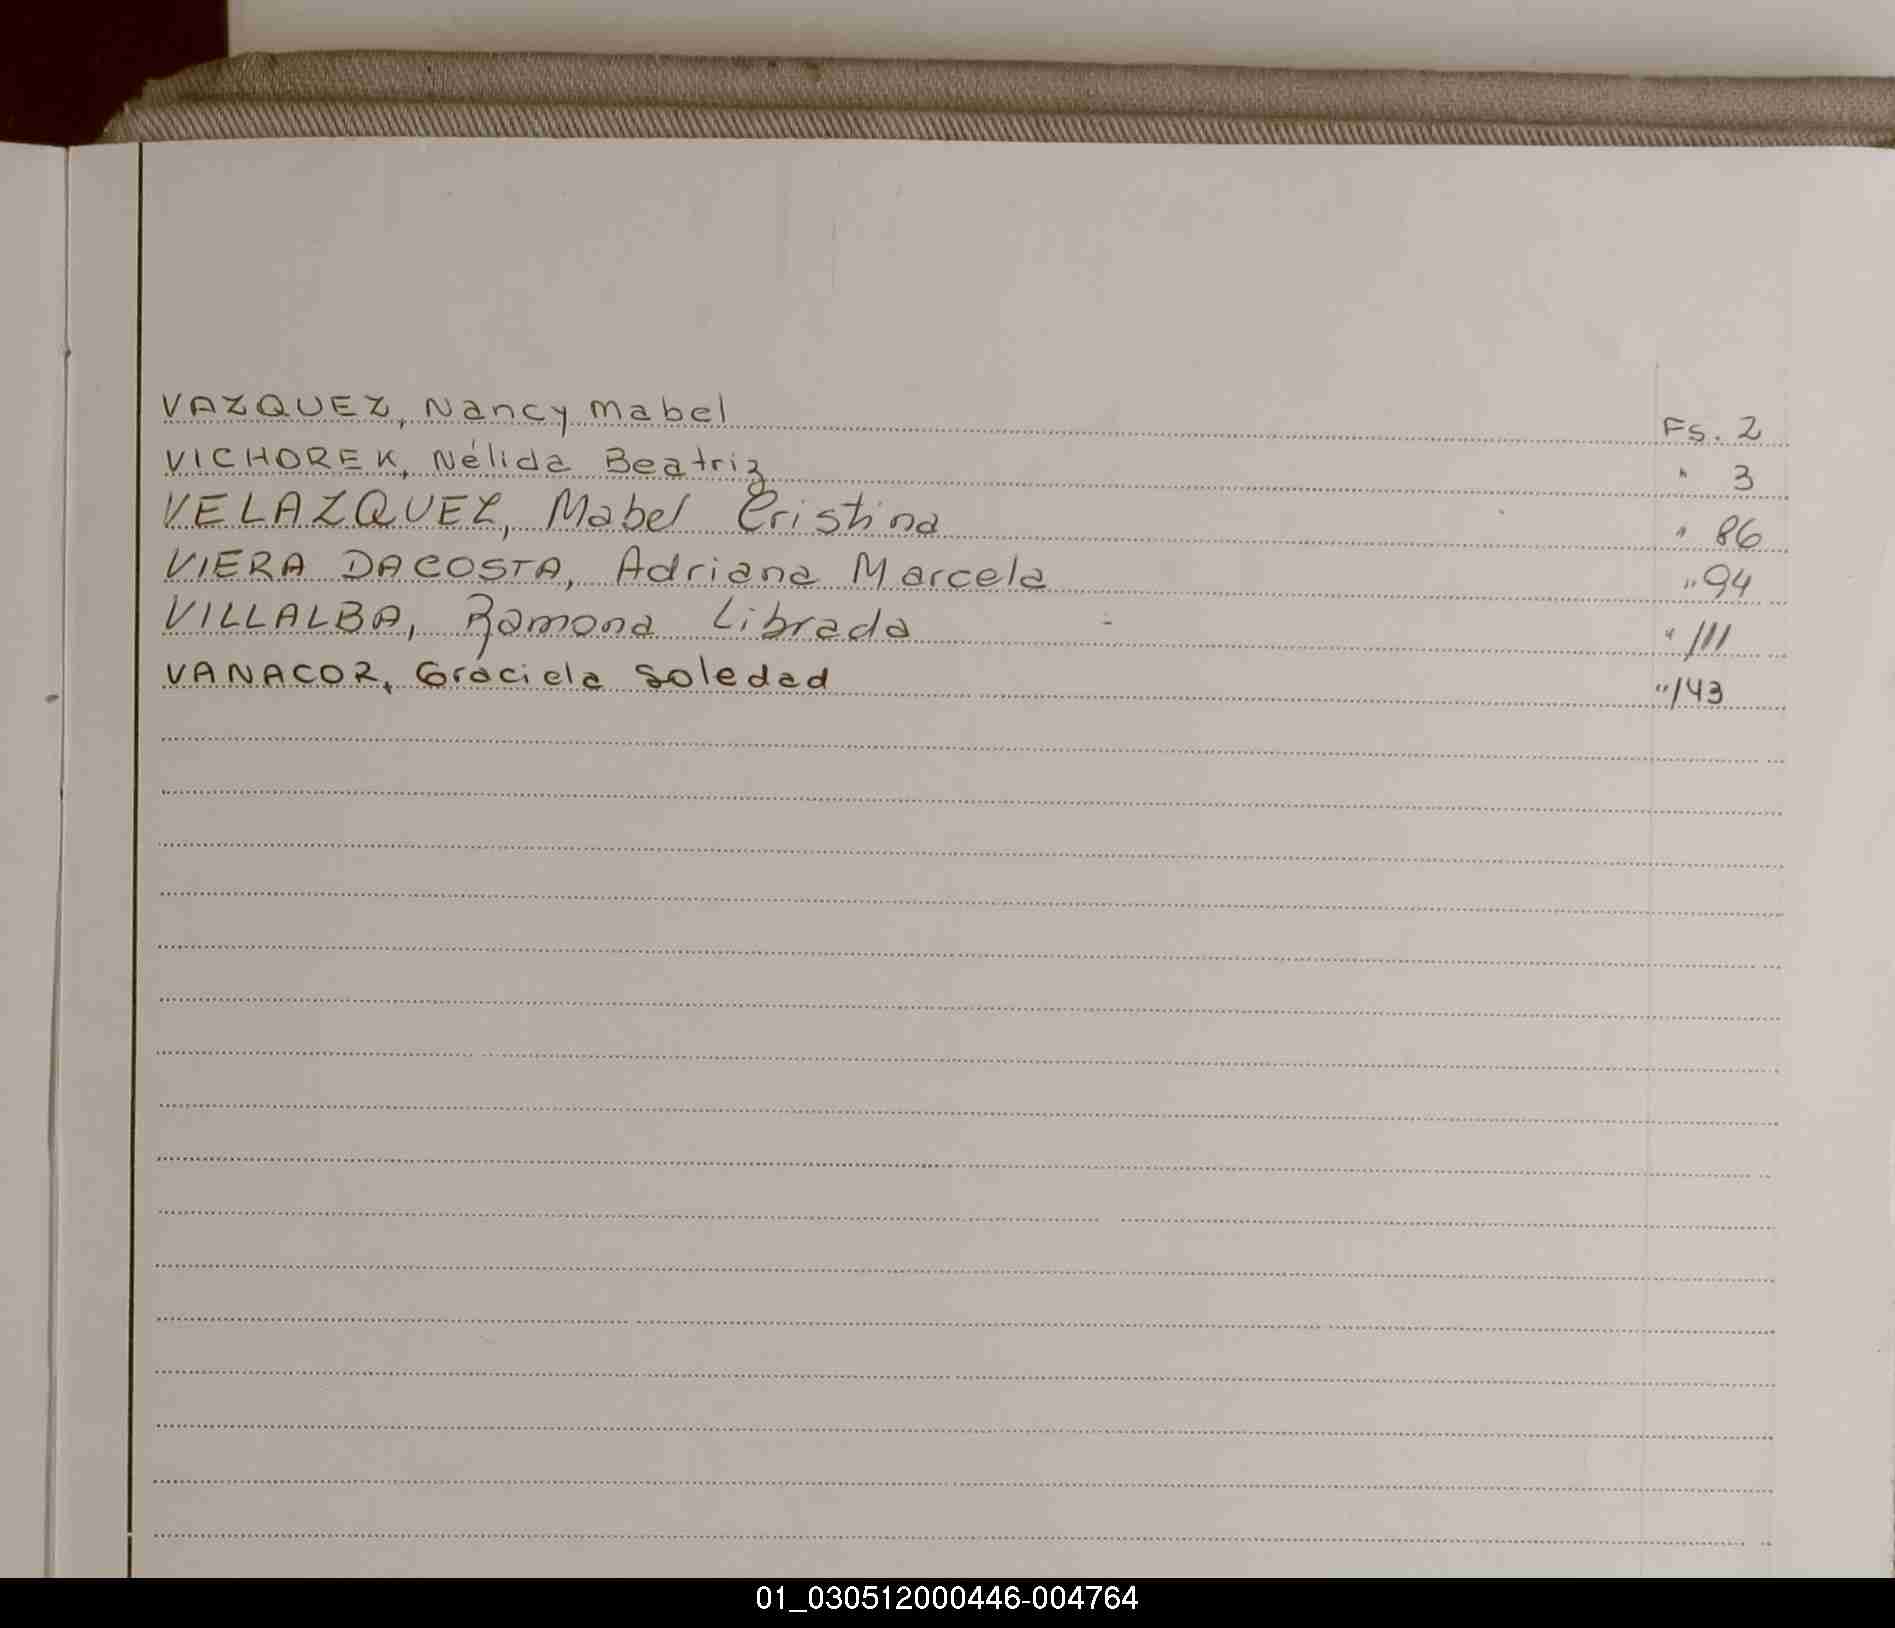 VAZQUEZ, Nancy Mabel Fs. 2
VICHOREK, Nélida Beatriz " 3
VELAZQUEZ, Mabel Cristina " 86
VIERA DACOSTA, Adriana Marcela " 94
VILLALBA, Ramona Librada " 111
VANACOR, Graciela Soledad " 143
01_030512000446-004764